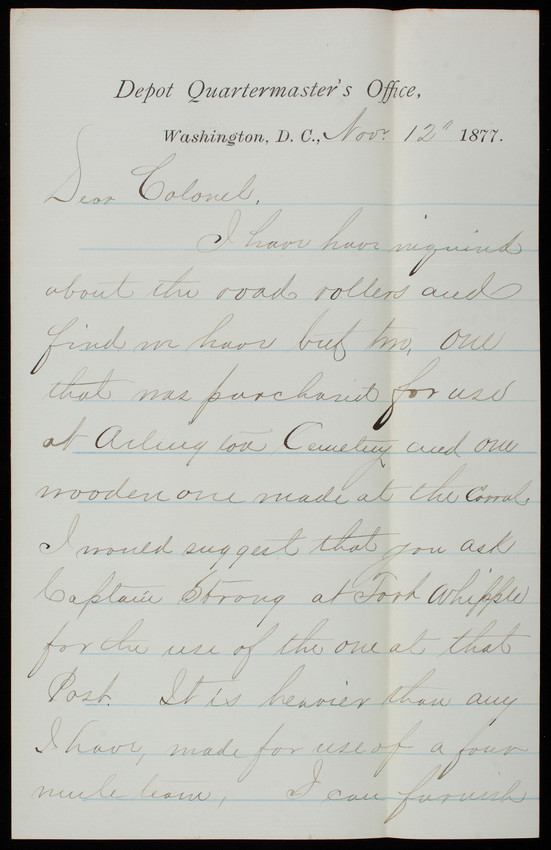 Depot Quartermaster's Office,
Washington, D. C., Novr. 12" 1877.
Dear Colonel,
I have have inquired
about the road rollers and
find we have but two, one
that was purchased for use
at Arlington Cemetery and one
wooden one made at the Corral.
I would suggest that you ask
Captain Strong at Fort Whipple
for the use of the one at that
Post. It is heavier than any
I have, made for use of a four
mule team, I can furnish